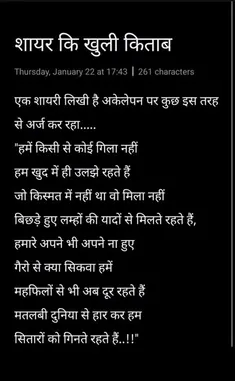 शायर कि खुली किताब
Thursday, January 22 at 17:43 | 261 characters
एक शायरी लिखी है अकेलेपन पर कुछ इस तरह
से अर्ज कर रहा.....
"हमें किसी से कोई गिला नहीं
हम खुद में ही उलझे रहते हैं
जो किस्मत में नहीं था वो मिला नहीं
बिछड़े हुए लम्हों की यादों से मिलते रहते हैं,
हमारे अपने भी अपने ना हुए
गैरो से क्या सिकवा हमें
महफिलों से भी अब दूर रहते हैं
मतलबी दुनिया से हार कर हम
सितारों को गिनते रहते हैं..!!"